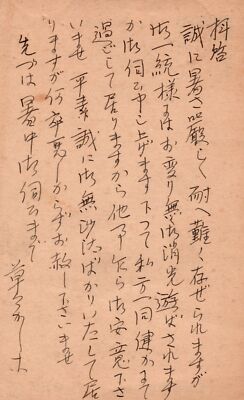 拝啓
誠に暑さ厳しく耐へ難く存ぜられますが
御一統様にはお変り無御消光遊ばされます
か御伺ひ申し上げます下つて私方一同健かにて
過して居りますから他事乍ら御安意下さ
いませ平素誠に御無沙汰ばかりいたして居
りますが何卒悪しからずお赦し下さいませ
先づは暑中御伺ひまで
草々かしこ